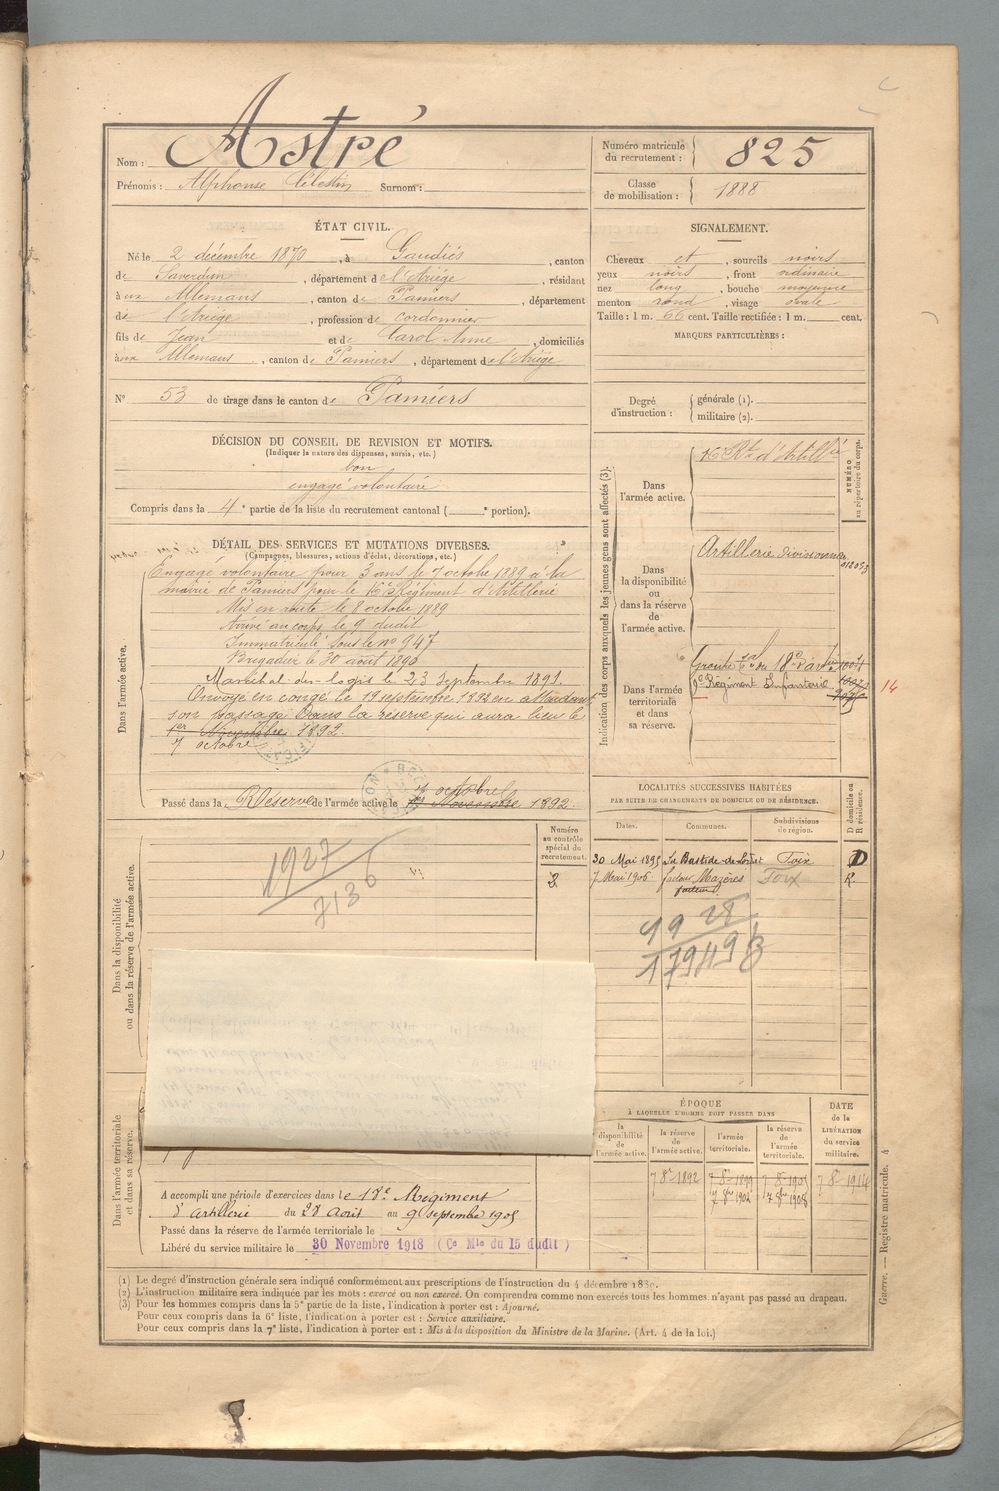 Nom : Astré
Prénoms : Alphonse Célestin Surnom :
Numéro matricule du recrutement : 825
Classe de mobilisation : 1888
ÉTAT CIVIL.
Né le 2 décembre 1870, à Gaudiés, canton
de Saverdun, département de l'Ariége, résidant
à ux Allemans, canton de Pamiers, département
de l'Ariége, profession de cordonnier
fils de Jean et de Carol Anne, domiciliés
à ux Allemans, canton de Pamiers, département de l'Ariége
SIGNALEMENT.
Cheveux et, sourcils noirs
yeux noirs, front ordinaire
nez long, bouche moyenne
menton rond, visage ovale
Taille : 1 m. 66 cent. Taille rectifiée : 1 m. cent.
MARQUES PARTICULIÈRES :
N° 53 de tirage dans le canton de Pamiers
Degré d'instruction : générale (1).
militaire (2).
DÉCISION DU CONSEIL DE REVISION ET MOTIFS.
(Indiquer la nature des dispenses, sursis, etc.)
bon
engagé volontaire
Compris dans la 4e partie de la liste du recrutement cantonal ( e portion).
DÉTAIL DES SERVICES ET MUTATIONS DIVERSES.
(Campagnes, blessures, actions d'éclat, décorations, etc.)
Dans l'armée active.
Engagé volontaire pour 3 ans le 7 octobre 1889 à la
mairie de Pamiers pour le 16e Régiment d'Artillerie
Mis en route le 8 octobre 1889
Arrivé au corps le 9 dudit
Immatriculé sous le no 947
Brigadier le 30 août 1890
Maréchal-des-logis le 23 septembre 1891.
Envoyé en congé le 19 septembre 1892 en attendant
son passage dans la réserve qui aura lieu le
1er Novembre 1892.
7 octobre
7 octobre
Passé dans la Réserve de l'armée active le 1er Novembre 1892.
Indication des corps auxquels les jeunes gens sont affectés (3).
NUMÉRO au répertoire du corps.
Dans l'armée active.
16e Rt d'Artillie
Dans la disponibilité ou dans la réserve de l'armée active.
Artillerie divisionnaire
Dans l'armée territoriale et dans sa réserve.
Groupe tal du 18e d'artie
Régiment Infanterie
14
LOCALITÉS SUCCESSIVES HABITÉES
PAR SUITE DE CHANGEMENTS DE DOMICILE OU DE RÉSIDENCE.
D domicile ou R résidence.
Dates. Communes. Subdivisions de région.
30 Mai 1895 La Bastide-de-Lordat Foix D
7 Mai 1906 facteur Mazères Foix R.
facteur
1928
17949
Numéro au contrôle spécial du recrutement.
Dans la disponibilité ou dans la réserve de l'armée active.
1927
7136
Dans l'armée territoriale et dans sa réserve.
A accompli une période d'exercices dans le 18e Régiment
d'artillerie du 28 Août au 9 septembre 1905
Passé dans la réserve de l'armée territoriale le
Libéré du service militaire le 30 Novembre 1918 (Ce Mle du 15 dudit)
ÉPOQUE
À LAQUELLE L'HOMME DOIT PASSER DANS
DATE de la LIBÉRATION du service militaire.
la disponibilité de l'armée active. la réserve de l'armée active. l'armée territoriale. la réserve de l'armée territoriale.
7 8re 1892 7 8re 1899 7 8re 1905 7 8re 1914
7 8re 1902 7 8re 1908
(1) Le degré d'instruction générale sera indiqué conformément aux prescriptions de l'instruction du 4 décembre 1889.
(2) L'instruction militaire sera indiquée par les mots : exercé ou non exercé. On comprendra comme non exercés tous les hommes n'ayant pas passé au drapeau.
(3) Pour les hommes compris dans la 5e partie de la liste, l'indication à porter est : Ajourné.
Pour ceux compris dans la 6e liste, l'indication à porter est : Service auxiliaire.
Pour ceux compris dans la 7e liste, l'indication à porter est : Mis à la disposition du Ministre de la Marine. (Art. 4 de la loi.)
Guerre. — Registre matricule. 4